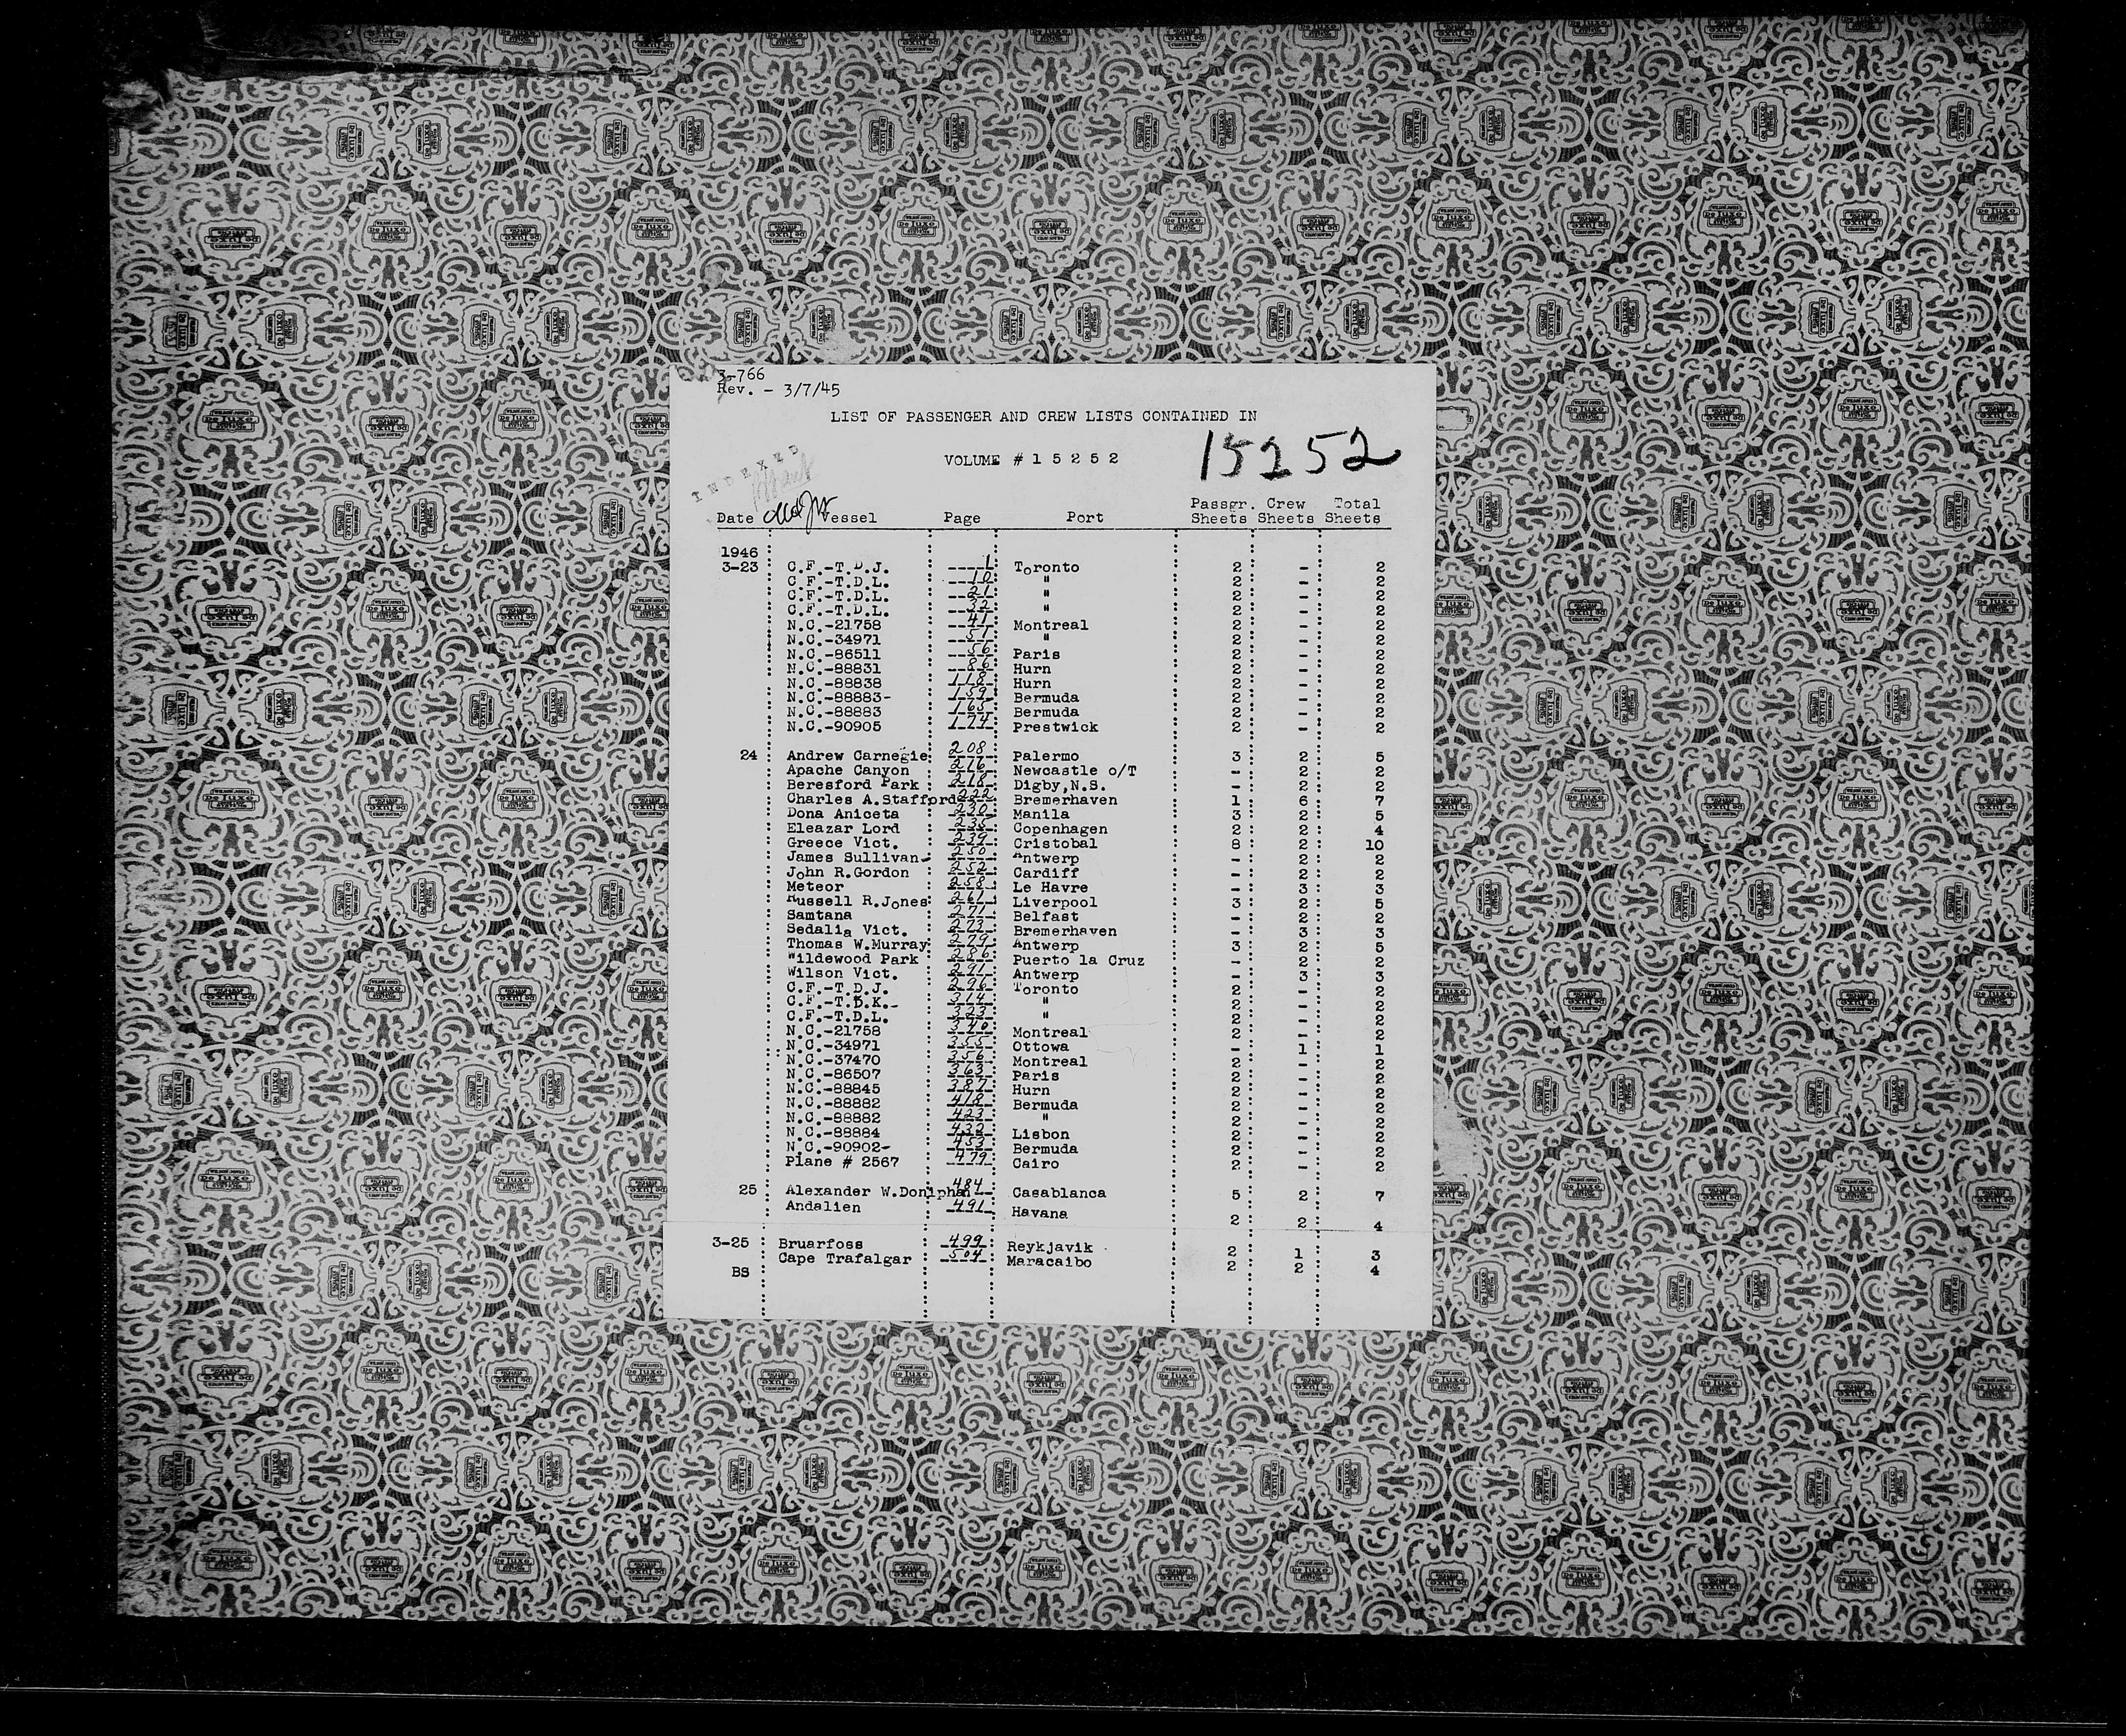 3-766
Rev. - 3/7/45
LIST OF PASSENGER AND CREW LISTS CONTAINED IN
VOLUME # 1 5 2 5 2
15252
INDEXED
Date Vessel Page Port Passgr. Sheets Crew Sheets Total Sheets
1946
3-23 C.F.-T.D.J. 1 Toronto 2 - 2
C.F.-T.D.L. 10 " 2 - 2
C.F.-T.D.L. 21 " 2 - 2
C.F.-T.D.L. 32 " 2 - 2
N.C.-21758 41 Montreal 2 - 2
N.C.-34971 51 " 2 - 2
N.C.-86511 56 Paris 2 - 2
N.C.-88831 86 Hurn 2 - 2
N.C.-88838 118 Hurn 2 - 2
N.C.-88883- 159 Bermuda 2 - 2
N.C.-88883 165 Bermuda 2 - 2
N.C.-90905 174 Prestwick 2 - 2
24 Andrew Carnegie 208 Palermo 3 2 5
Apache Canyon 216 Newcastle o/T - 2 2
Beresford Park 218 Digby,N.S. - 2 2
Charles A.Stafford 222 Bremerhaven 1 6 7
Dona Aniceta 230 Manila 3 2 5
Eleazar Lord 235 Copenhagen 2 2 4
Greece Vict. 239 Cristobal 8 2 10
James Sullivan- 250 Antwerp - 2 2
John R.Gordon 252 Cardiff - 2 2
Meteor 258 Le Havre - 3 3
Russell R.Jones 261 Liverpool 3 2 5
Samtana 271 Belfast - 2 2
Sedalia Vict. 272 Bremerhaven - 3 3
Thomas W.Murray 279 Antwerp 3 2 5
Wildewood Park 286 Puerto la Cruz - 2 2
Wilson Vict. 291 Antwerp - 3 3
C.F.-T.D.J. 296 Toronto 2 - 2
C.F.-T.D.K.- 314 " 2 - 2
C.F.-T.D.L. 323 " 2 - 2
N.C.-21758 340 Montreal 2 - 2
N.C.-34971 355 Ottowa - 1 1
N.C.-37470 356 Montreal 2 - 2
N.C.-86507 363 Paris 2 - 2
N.C.-88845 387 Hurn 2 - 2
N.C.-88882 418 Bermuda 2 - 2
N.C.-88882 423 " 2 - 2
N.C.-88884 432 Lisbon 2 - 2
N.C.-90902- 453 Bermuda 2 - 2
Plane # 2567 479 Cairo 2 - 2
25 Alexander W.Doniphan 484 Casablanca 5 2 7
Andalien 491 Havana 2 2 4
3-25 Bruarfoss 499 Reykjavik 2 1 3
Cape Trafalgar 504 Maracaibo 2 2 4
BS